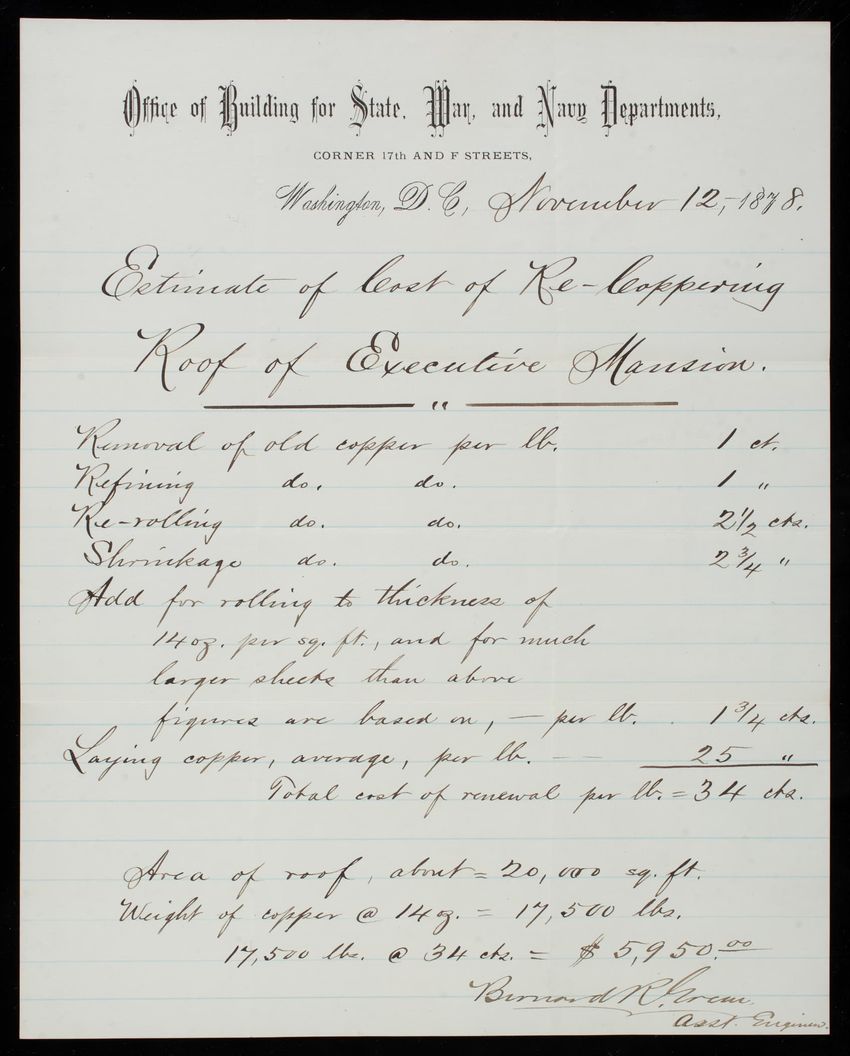 Office of Building for State, War, and Navy Departments,
CORNER 17th AND F STREETS,
Washington, D. C., November 12,- 1878.
Estimate of Cost of Re-Coppering
Roof of Executive Mansion.
"
Removal of old copper per lb. 1 ct.
Refining do. do. 1 "
Re-rolling do. do. 2 1/2 cts.
Shrinkage do. do. 2 3/4 "
Add for rolling to thickness of
14 oz. per sq. ft., and for much
larger sheets than above
figures are based on, — per lb. . 1 3/4 cts.
Laying copper, average, per lb. — — 25 "
Total cost of renewal per lb. = 34 cts.
Area of roof, about = 20,000 sq. ft.
Weight of copper @ 14 oz. = 17,500 lbs.
17,500 lbs. @ 34 cts. = $ 5,950.00
Bernard R. Green
Asst. Engineer.